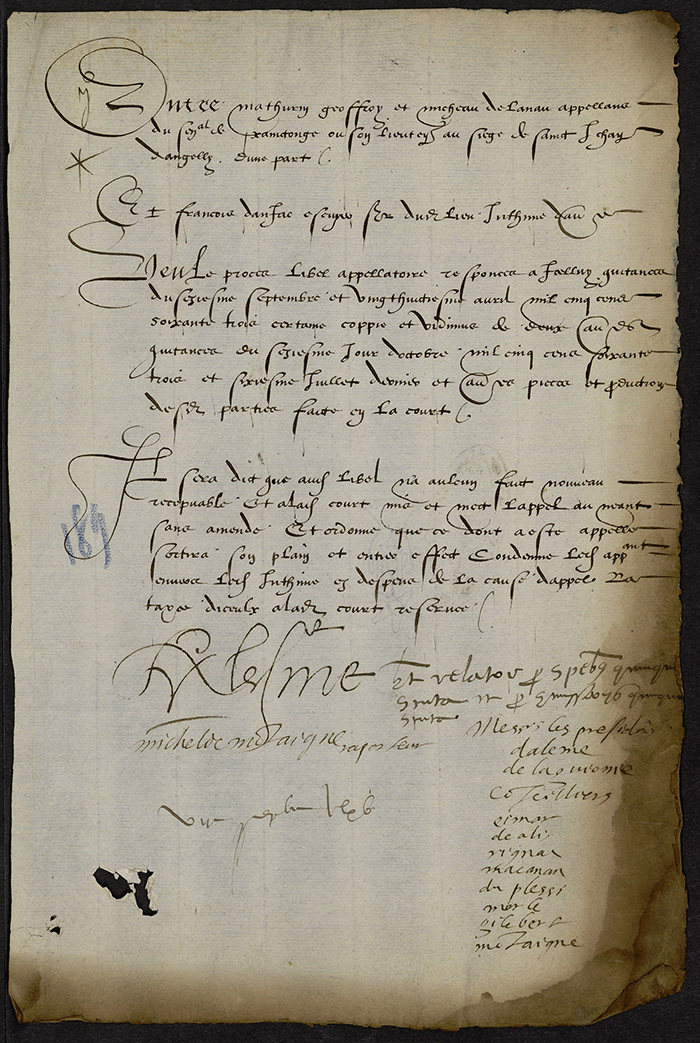 Entre mathurin geoffroy et micheau delanau appellans
du sen.al de xainctonge ou son lieuten au siege de sainct Jehan
dangely dune part
Et francois danjac escuyer sgr dud lieu Inthime dau
Veu le proces libel appellatoire responces a Icelluy quitances
du seziesme septembre et vingthuitiesme avril mil cinq cens
soixante trois certaine coppie et vidimus de deux au
quitances du seziesme jour doctobre mil cinq cens soixante
trois et sixiesme Juillet dernier et au pieces et production
desd parties faicte en la court
Il sera dit que aud libel n'a aulcun faict nouveau
recepvable Et a lad court mis et mect lappel au neant
sans amende Et ordonne que ce dont a este appelle
sortira son plain et entier effect Condenne lesd appant
envers led Inthime es despens de la cause dappel La
taxe diceulx a lad court reservee
189
Et relator p speb quinque
scuta p quinque
scuta
michel de motaigne raporteur
Messrs les presidãs
daleme
de la
Coseilliers
eimar
de ali
rignac
macanan
du plessi
merle
gilebert
motaigne